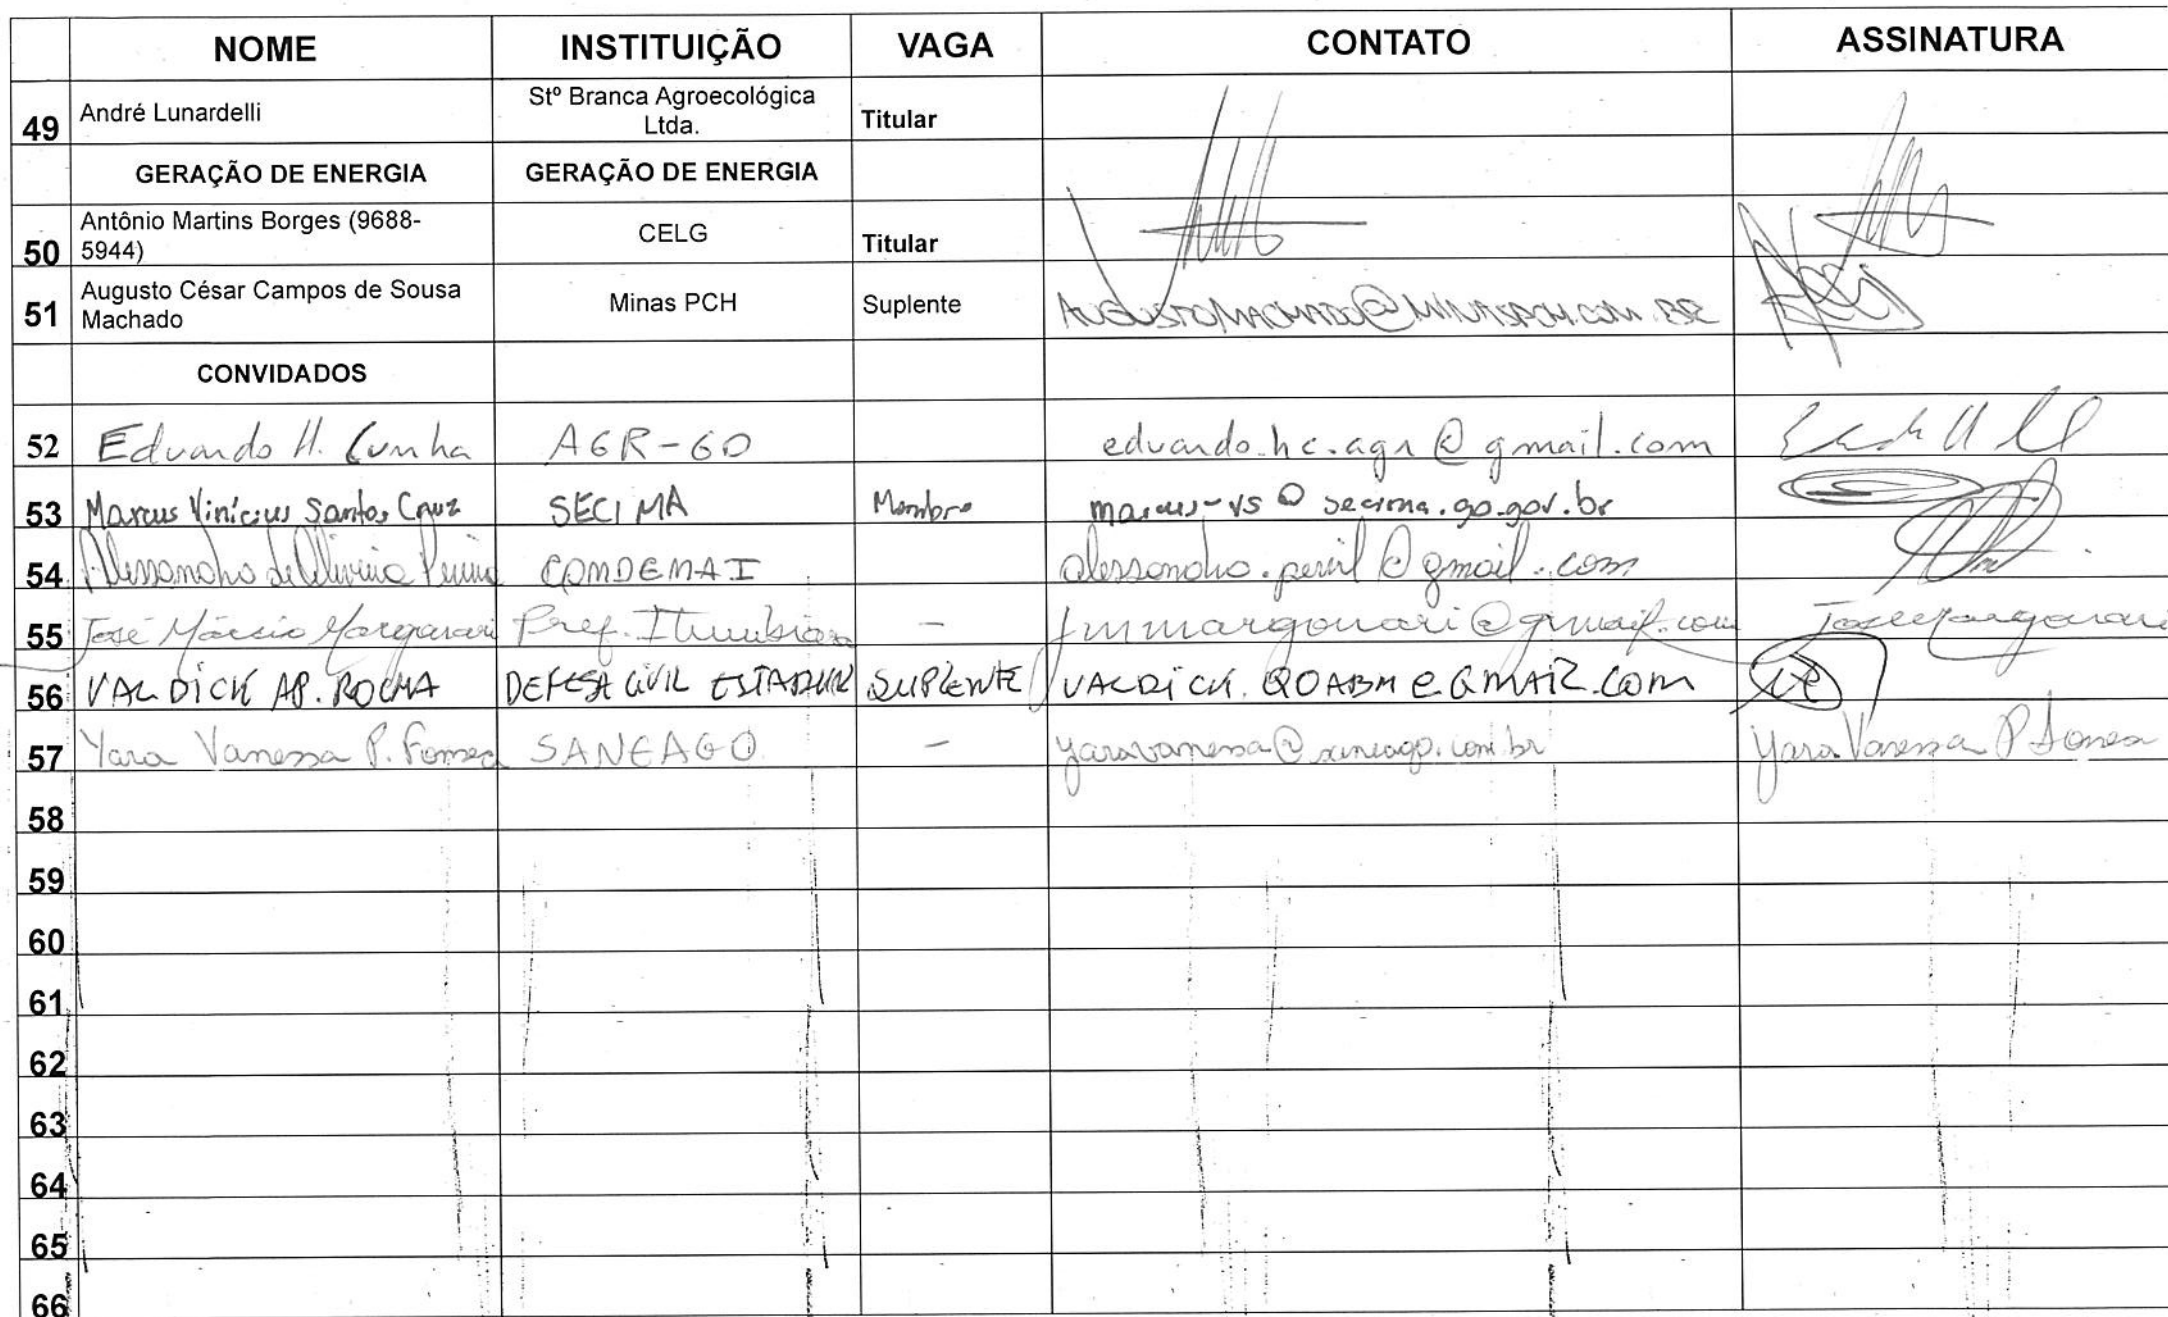 NOME INSTITUIÇÃO VAGA CONTATO ASSINATURA
49 André Lunardelli Stº Branca Agroecológica Ltda. Titular
GERAÇÃO DE ENERGIA GERAÇÃO DE ENERGIA
50 Antônio Martins Borges (9688-5944) CELG Titular
51 Augusto César Campos de Sousa Machado Minas PCH Suplente AUGUSTOMACHADO@MINASPCH.COM.BR
CONVIDADOS
52 Eduardo H. Cunha AGR-GO eduardo.hc.agr@gmail.com
53 Marcus Vinícius Santos Cruz SECIMA Membro marcus-vs@secima.go.gov.br
54 Alessandro de Oliveira CONDEMAI
55 José Márcio Margonari Pref. Itumbiara - jmmargonari@gmail.com
56 VALDICK AP. ROCHA DEFESA CIVIL ESTADUAL SUPLENTE VALDICK.QOABM@GMAIL.COM
57 Yara Vanessa P. Fonseca SANEAGO - yaravanessa@saneago.com.br Yara Vanessa P Fonseca
58
59
60
61
62
63
64
65
66